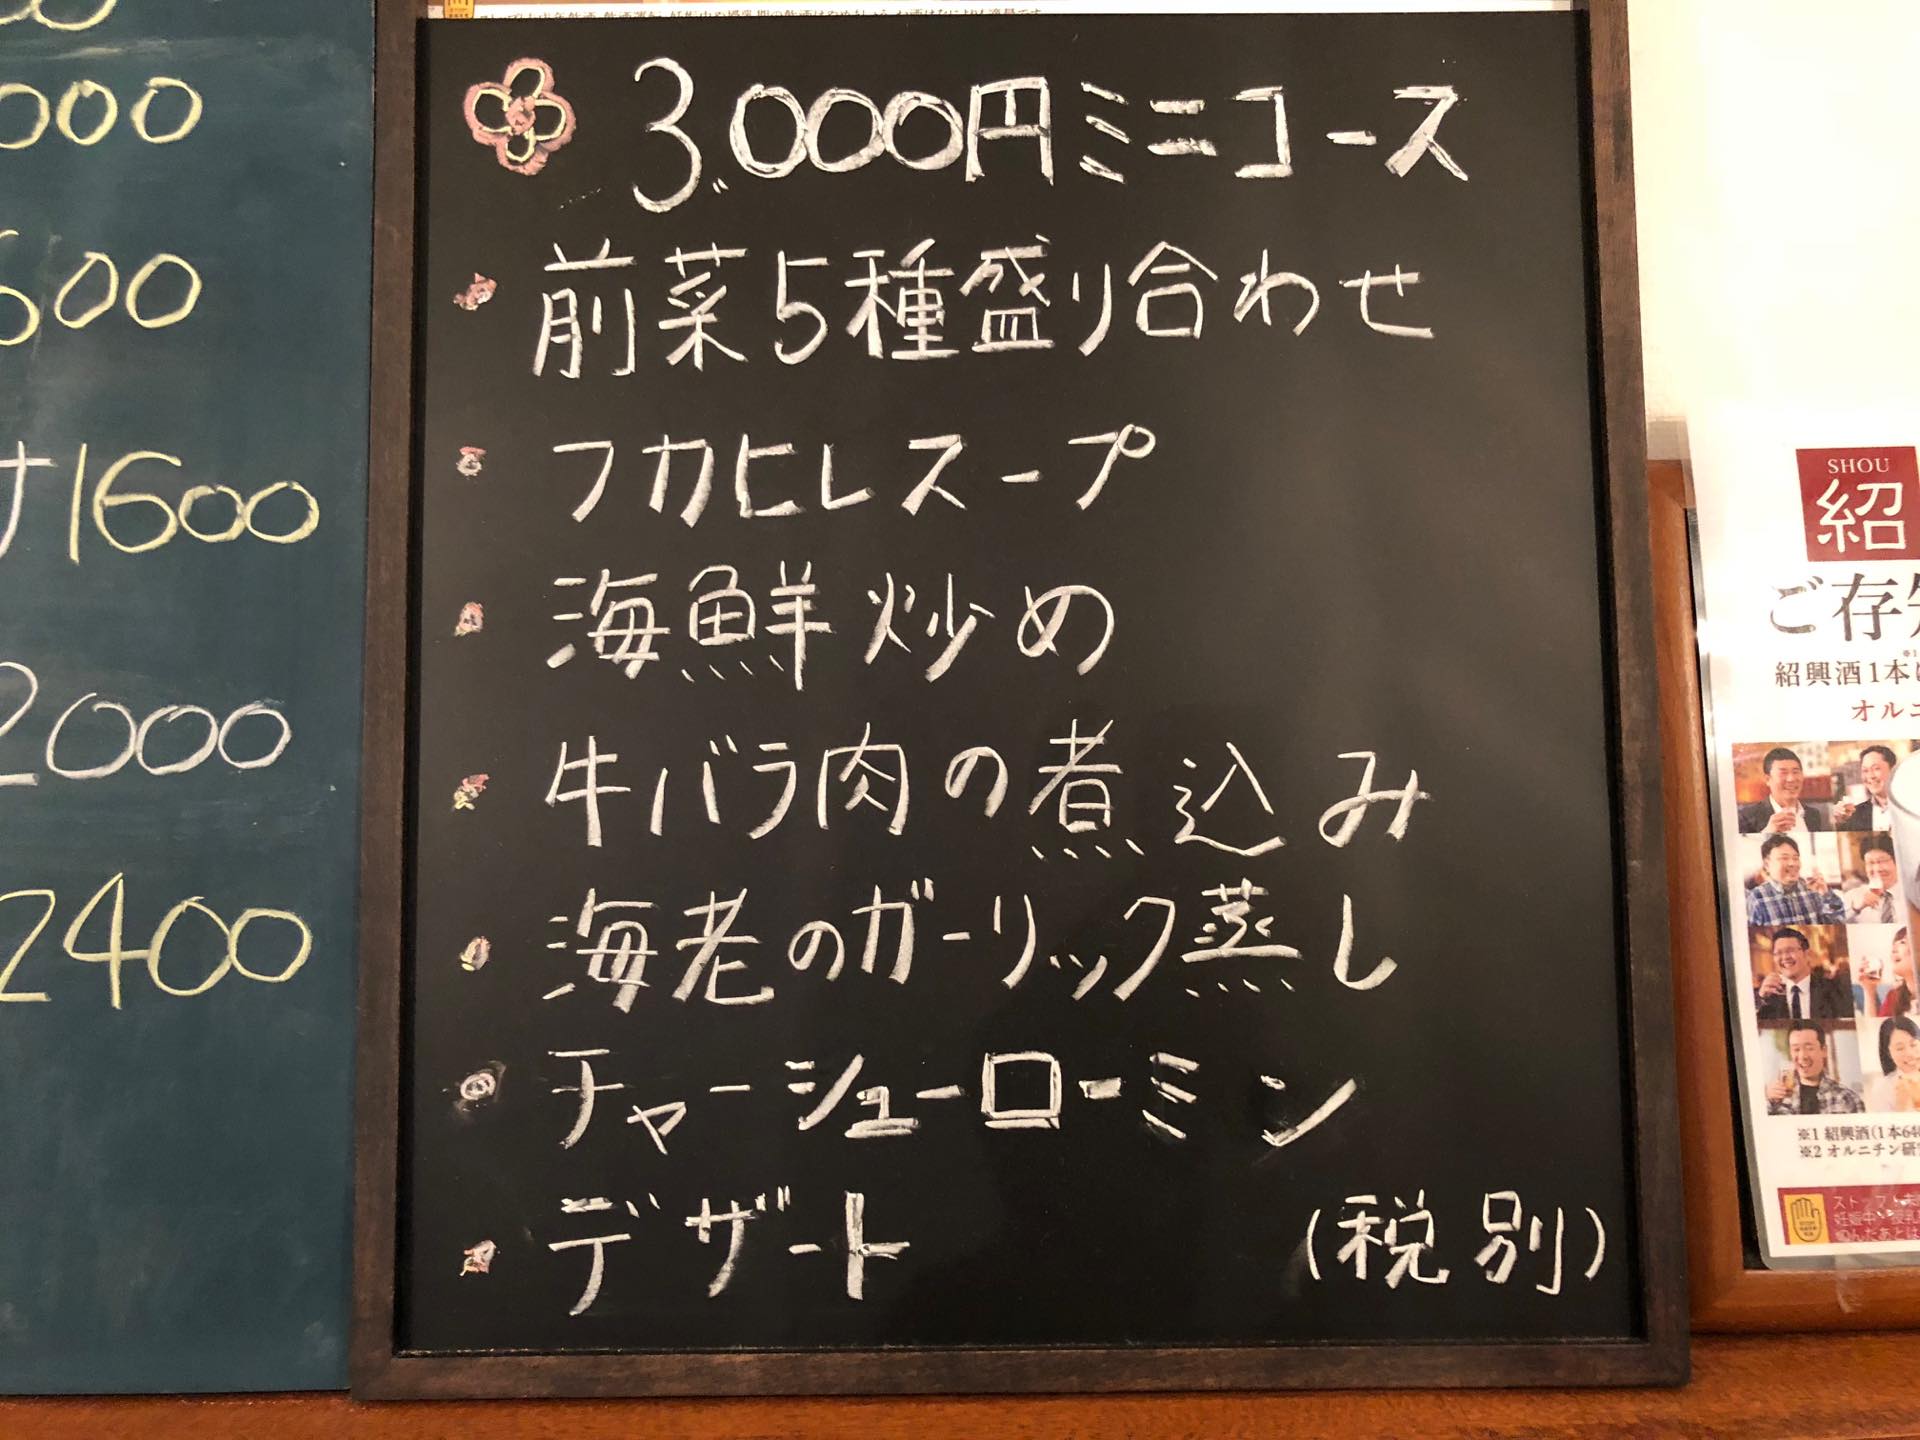 000
600
1600
2000
2400
3.000円ミニコース
・前菜5種盛り合わせ
・フカヒレスープ
・海鮮炒め
・牛バラ肉の煮込み
・海老のガーリック蒸し
・チャーシューローミン
・デザート (税別)
SHOU
紹
ご存
紹興酒1本
オルニ
※1 紹興酒(1本64
※2 オルニチン研